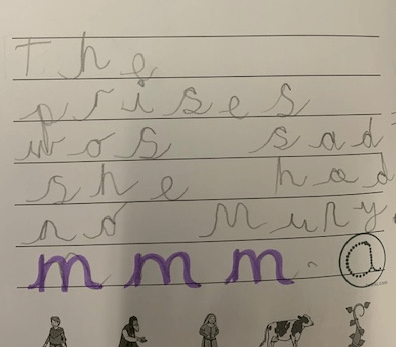 The
prises
wos sad
she had
no Muny
m m m a